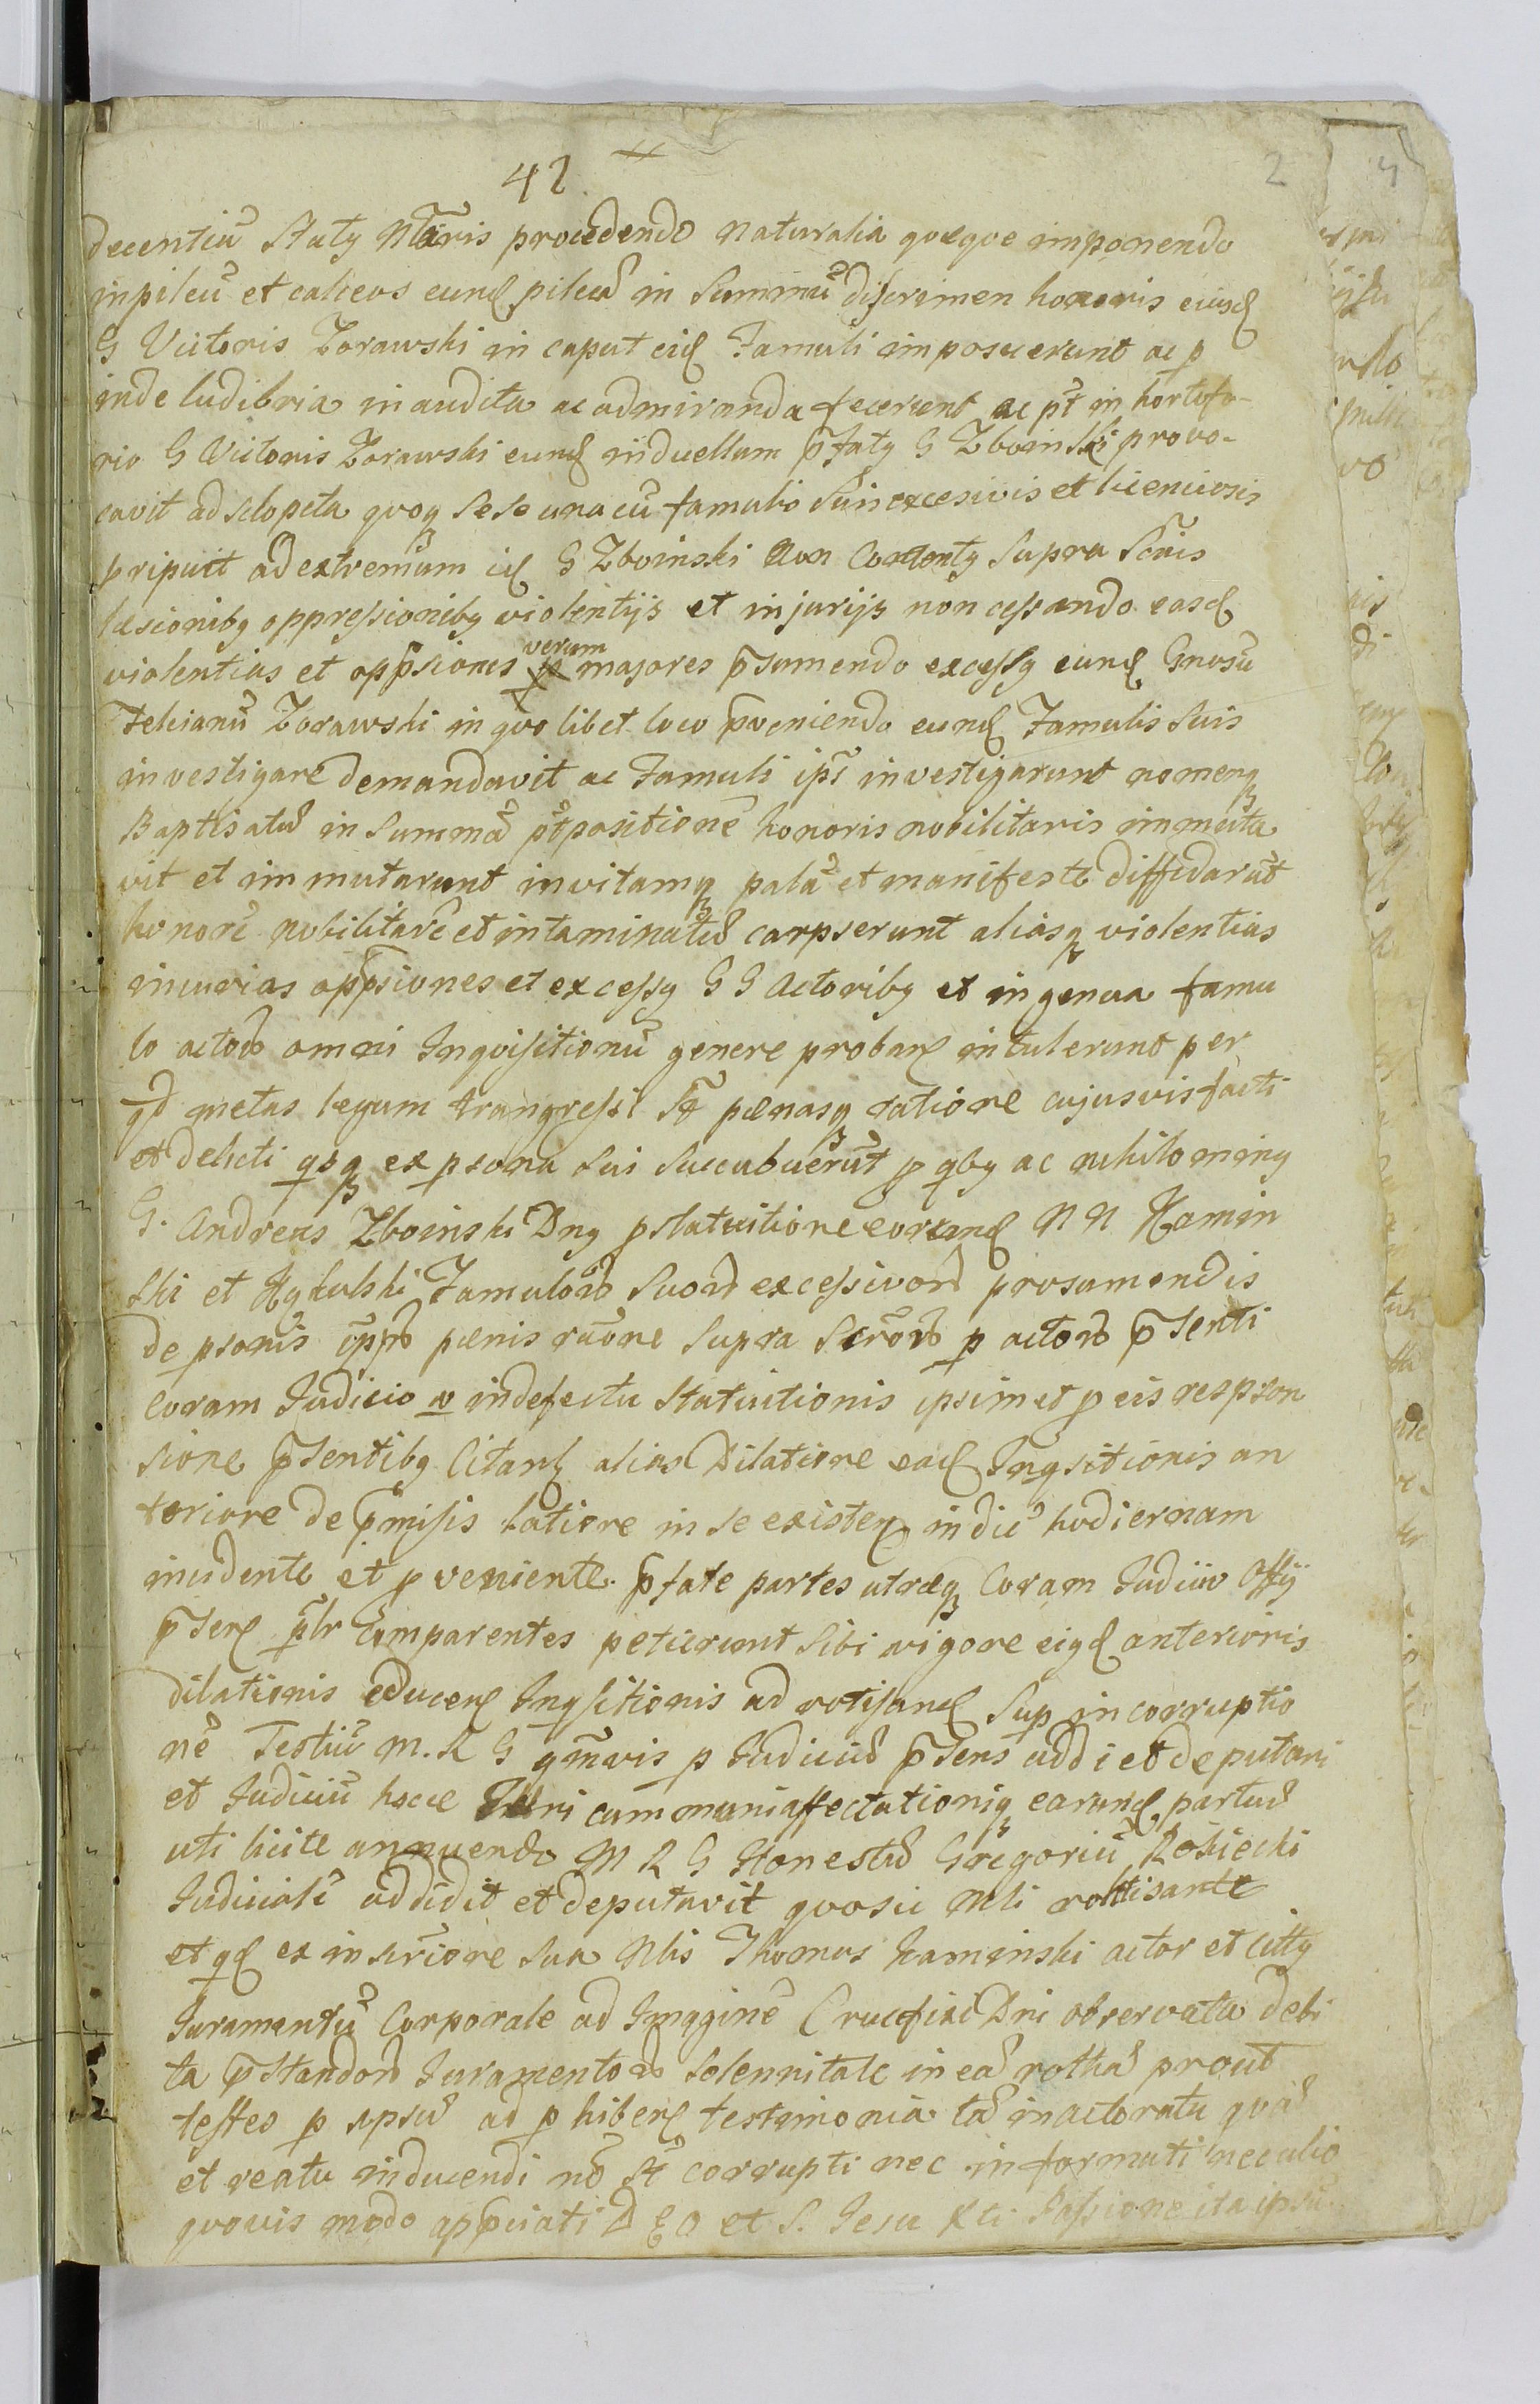 42
2
decentiũ Statꝰ Nt̃aris procedendo naturalia quoque imponendo
in pileũ et calceos eund pileũ in Summũ discrimen honoris eiusd
G Victoris Zorawski in caput eid Famuli imposuerunt ac p
inde ludibria inaudita ac admiranda fecerunt ac pt̃ in hortofo-
rio G Victoris Zorawski eund in duellum p̃fatꝰ G Zboinski provo-
cavit ad sclopeta quoq sese una cũ famulis Suis excesivis et licenciosis
pripuit ad extremum id G Zboinski Non Contentꝰ Supra Scr̃is
læsionibꝰ oppressionibꝰ violentijs et injurijs non cessando easd
violentias et opp̃siones verum majores p̃sumendo excessꝰ eund Gnosũ
Felicianũ Zorawski in quo libet loco p̃veniendo eund Famulis Suis
investigare demandavit ac Famuli ips̃ investigarunt nomenq
Baptisatũ in Summã p̃tpositionẽ honoris nobilitaris immuta
vit et immutarunt in vitamq palã et manifeste diffidarũt
honorẽ nobilitarẽ et intaminatũ carpserunt aliasq violentias
iniurias opp̃siones et excessꝰ G G Actoribꝰ et ingenua famu
lo actorũ omni Inquisitionũ genere proban intulerunt per
qd metas legum trangressi St̃ pœnasq ratione cujusvis facti
et delicti qsq ex psona Sui Succubuerũt p qbꝰ ac nihilominꝰ
G. Andreas Zboinski Dnꝰ p statuitione eorund N N Kamin
ski et Rykulski Famulorũ Suorũ excessivorũ pro sumendis
de psonis ip̃orũ pœnis rãone Supra Scrõrũ p actorũ p̃senti
Coram Judicio v in defectu Statuitionis ipsimet p eis respon
sione p̃sentibꝰ Citand alias Dilatione ead Inqsitionis an
teriore de p̃misis latiore in se existen in diẽ hodiernam
incidente et pveniente. p̃fate partes utræq Coram Judicio Offij
p̃sen p̃lr Comparentes petierunt Sibi vigore eigd anterioris
dilationis educend Inqsitionis ad rotisand Sup incorruptio
nẽ Testiũ M. R G qm̃vis p Judiciũ p̃sens addi et deputari
et Judiciũ hocce Juri communi affectationiq earund partiũ
uti licite annuendo M R G Honestũ Gregoriũ Rokiecki
Judicialẽ addidit et deputavit quosic Nli rottisante
et qd ex inscriõne sua Nlis Thomas Kaminski actor et Cittꝰ
Juramentũ Corporale ad Imaginẽ Crucifixi Dni observata debi
ta p̃standorũ Juramentorũ Solennitate in eã rothã prout
testes p ipsũ ad phiben testimonia tã in actoratu quã
et reatu inducendi nõ St̃ corrupti nec informati nec alio
quovis modo app̃ciati D E O et S. Jesu Xti Passione ita ipsũ